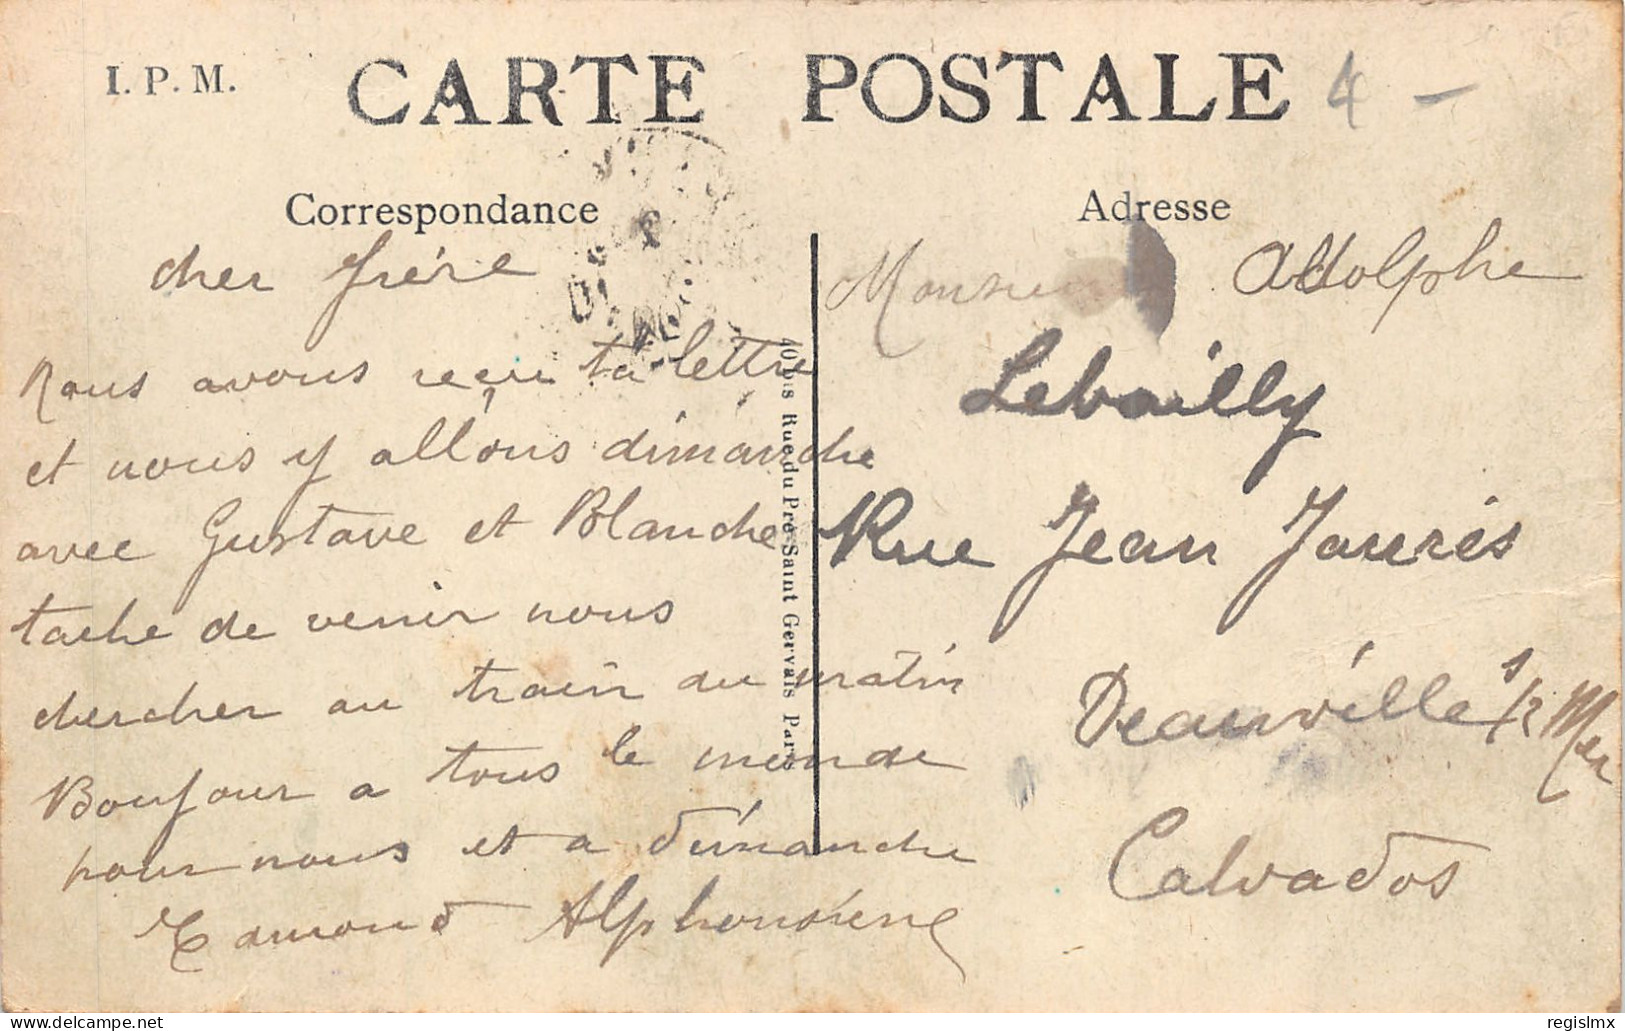 I. P. M.
CARTE POSTALE
4 –
Correspondance
cher frére
Nous avons reçu ta lettre
et nous y allons dimanche
avec Gustave et Blanche
tache de venir nous
chercher au train du matin
Bonjour a tous le monde
pour nous et a dimanche
Alphonsine
40 bis Rue du Pré Saint Gervais Paris
Adresse
Monsieur Adolphe
Lebailly
Rue Jean Jaurès
Deauville s/ Mer
Calvados
delcampe.net
regislmx